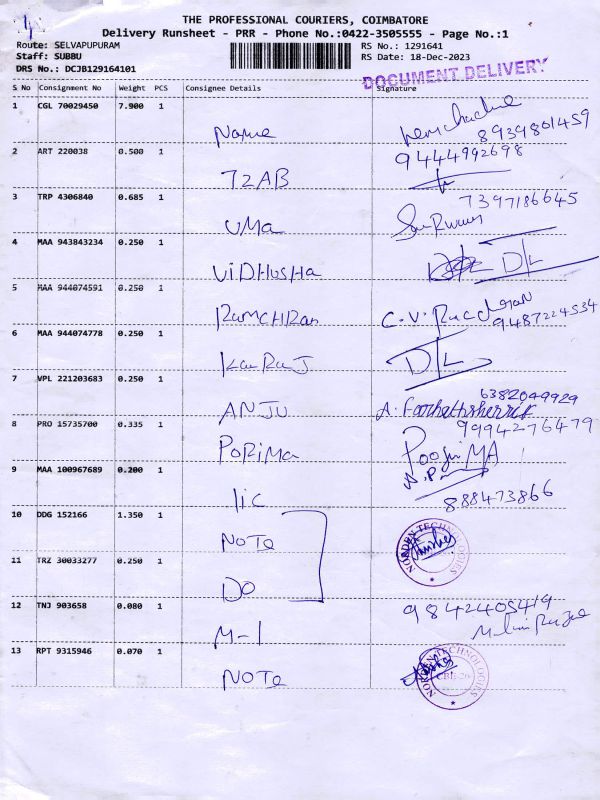 THE PROFESSIONAL COURIERS, COIMBATORE
Delivery Runsheet - PRR - Phone No.:0422-3505555 - Page No.:1
Route: SELVAPUPURAM RS No.: 1291641
Staff: SUBBU RS Date: 18-Dec-2023
DRS No.: DCJB129164101
DOCUMENT DELIVERY
S No Consignment No Weight PCS Consignee Details Signature
1 CGL 70029450 7.900 1
Name 8939801459
2 ART 220038 0.500 1 9444992698
TZAB
3 TRP 4306840 0.685 1 7397186645
UMa
4 MAA 943843234 0.250 1
ViDHUSHa D/L
5 MAA 944074591 0.250 1
RaMCHRan C.V. 9487224534
6 MAA 944074778 0.250 1
D/L
7 VPL 221203683 0.250 1 6382049929
ANJU A.
8 PRO 15735700 0.335 1 9994276479
PORiMa
9 MAA 100967689 0.200 1
lic 888473866
10 DDG 152166 1.350 1
NOTe NORDEN TECHNOLOGIES
11 TRZ 30033277 0.250 1
DO
12 TNJ 903658 0.080 1 9842405419
M-1
13 RPT 9315946 0.070 1
NOTe NORDEN TECHNOLOGIES